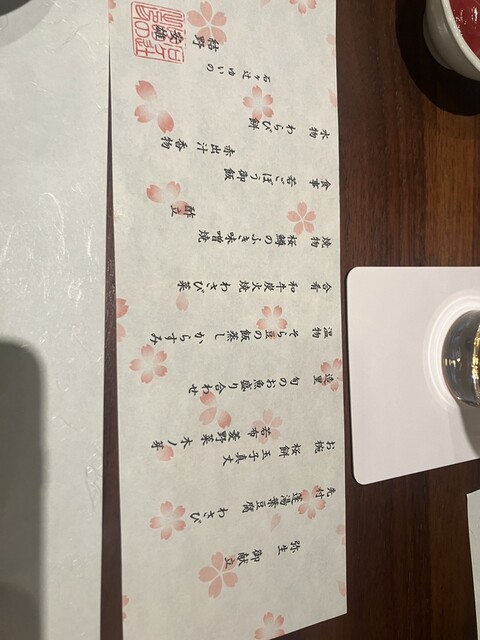 弥生
御献立
先付
蓬湯葉豆腐 わさび
お椀
桜餅 玉子真丈
若布 菱野菜 木ノ芽
造里
旬のお魚盛り合わせ
温物
そら豆の飯蒸し からすみ
合肴
和牛炭火焼 わさび菜
焼物
桜鱒のふき味噌焼
酢立
食事
若ごぼう御飯
赤出汁
香物
水物
わらび餅
石ヶ辻 ゆいの
結野